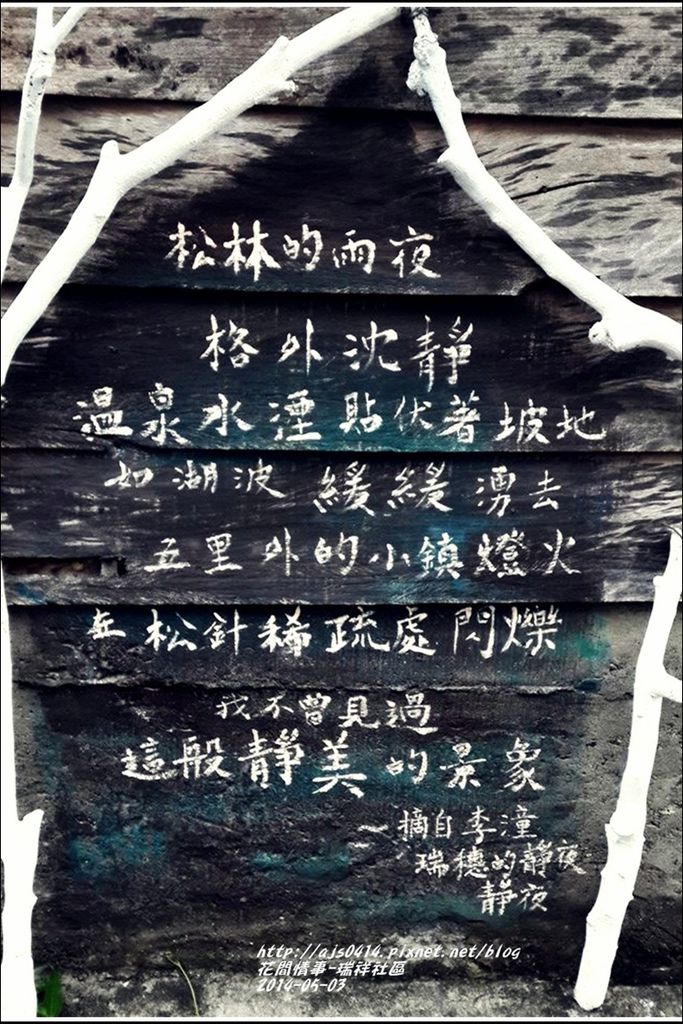 松林的雨夜
格外沈靜
溫泉水湮貼伏著坡地
如湖波 緩緩湧去
五里外的小鎮燈火
在松針稀疏處閃爍
我不曾見過
這般靜美的景象
－摘自李潼
瑞穗的靜夜
靜夜
http://ajs0414.pixnet.net/blog
花間情事-瑞祥社區
2014-05-03